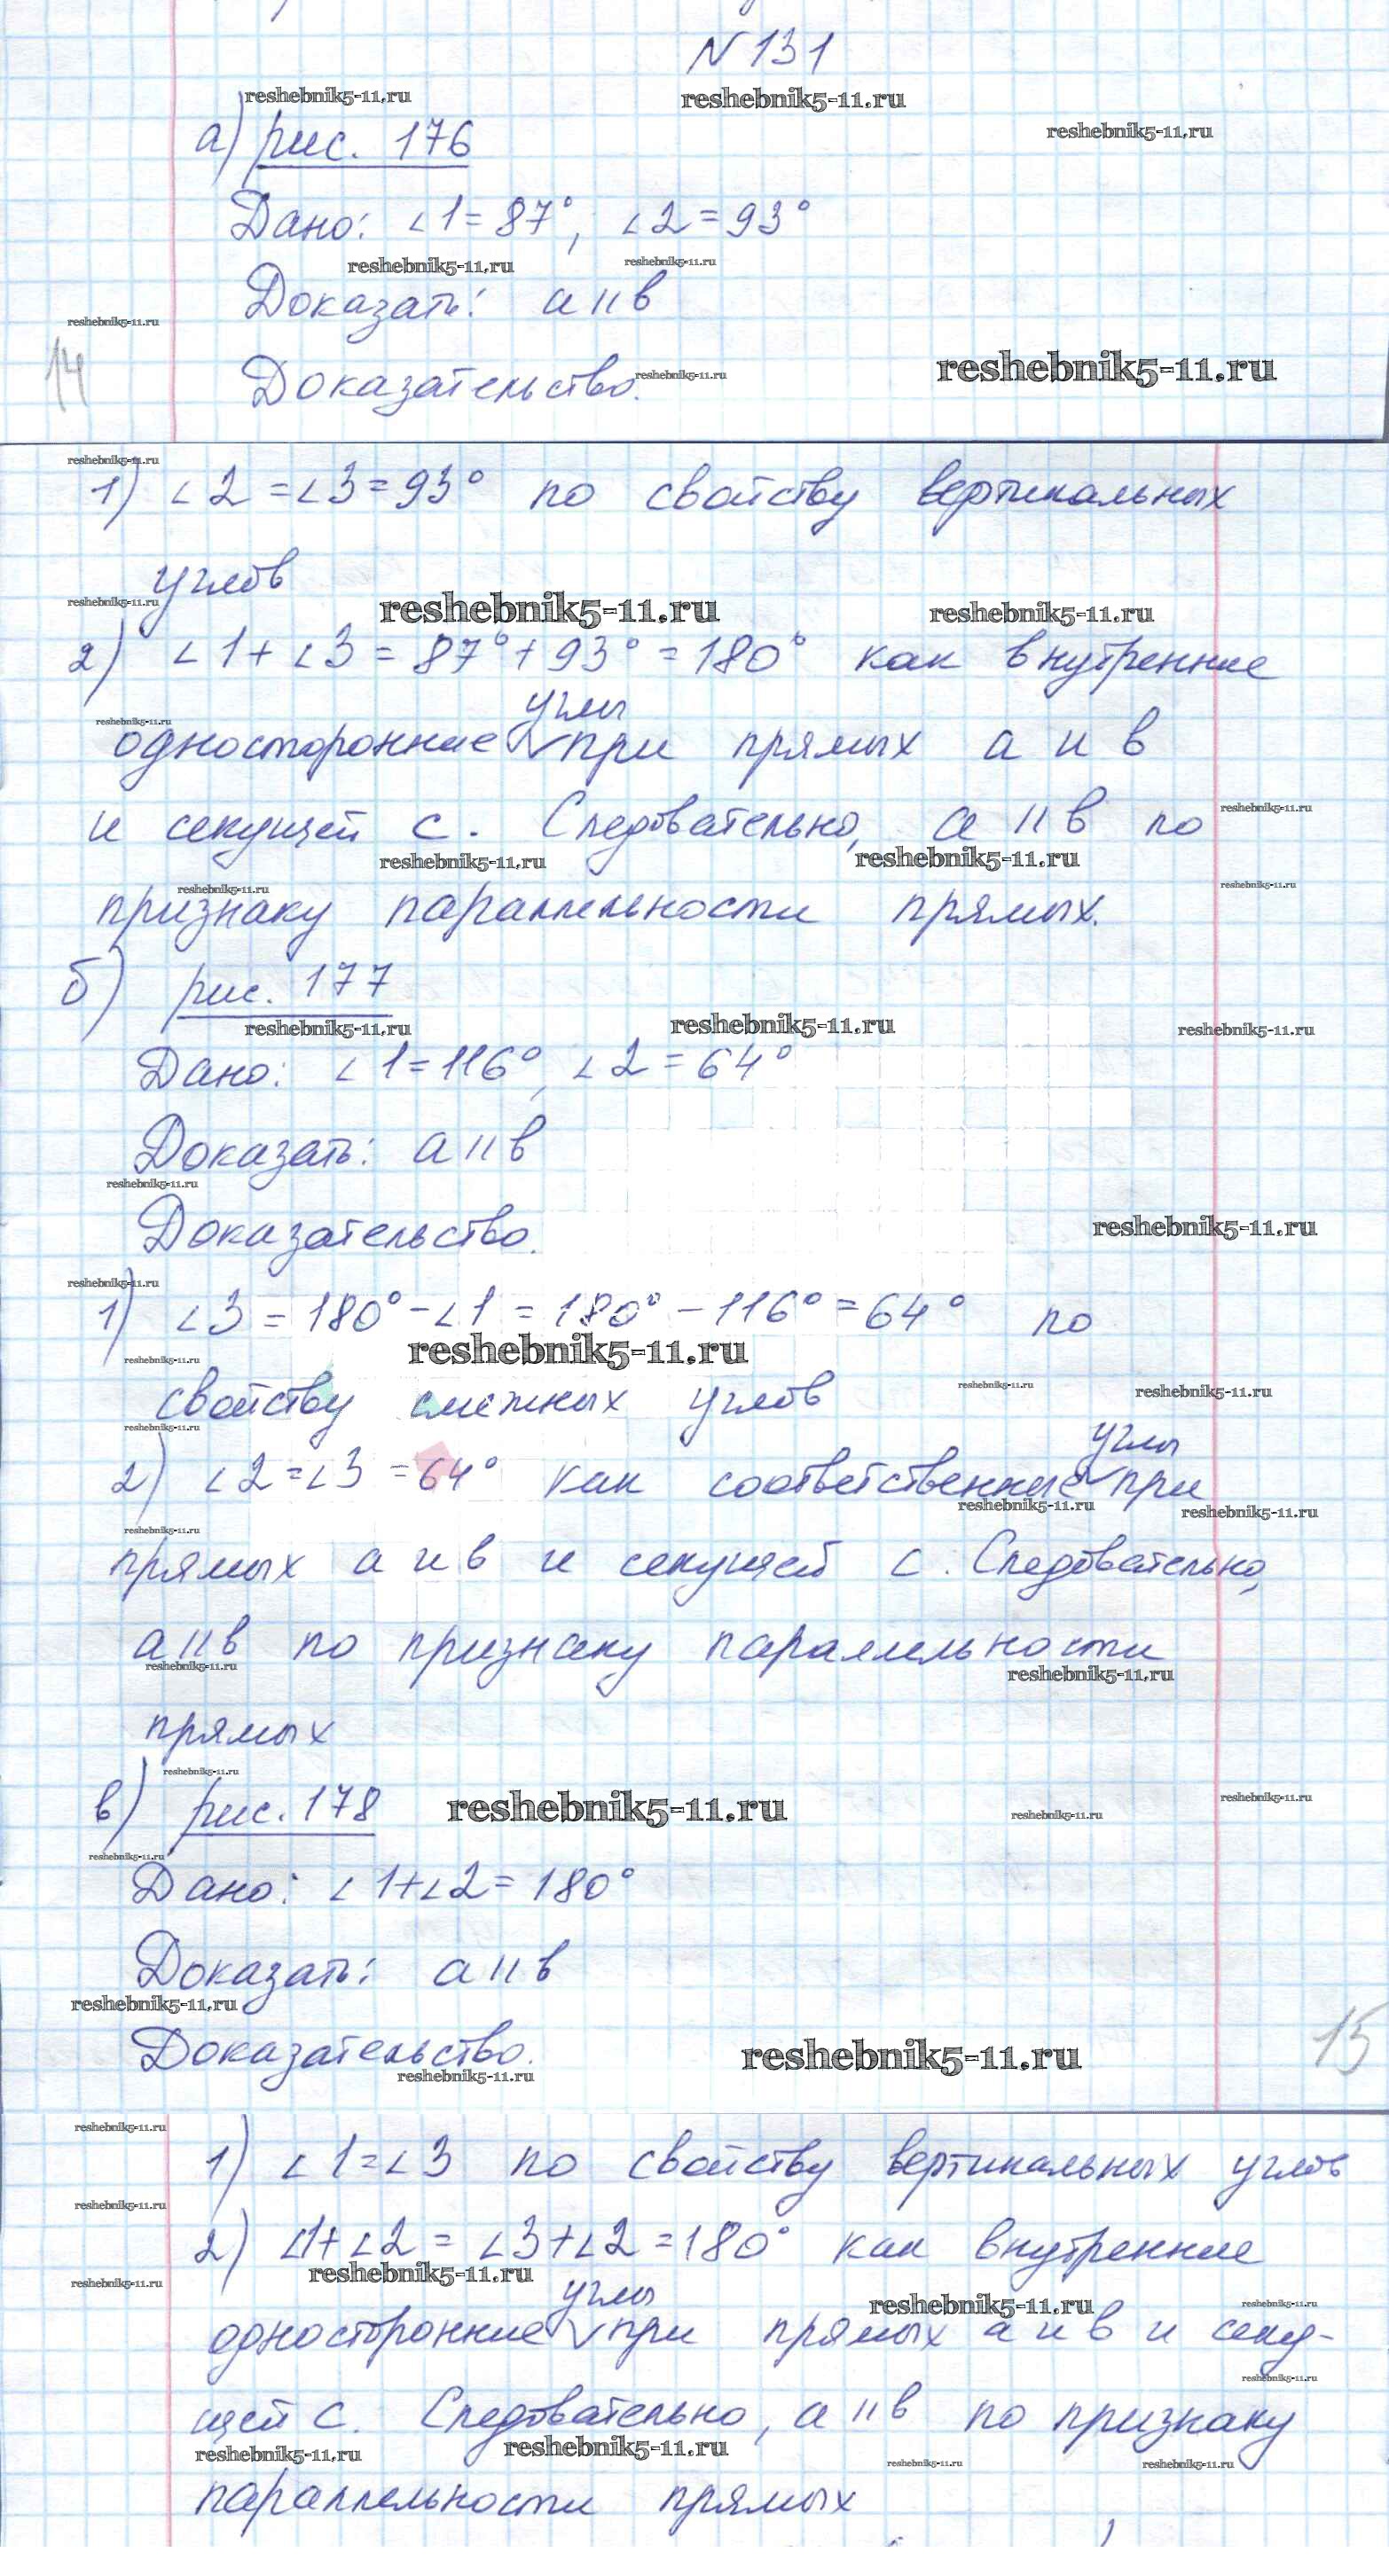 N 131
reshebnik5-11.ru
reshebnik5-11.ru
reshebnik5-11.ru
а) рис. 176
Дано: ∠1=87°, ∠2=93°
reshebnik5-11.ru
reshebnik5-11.ru
Доказать: a || b
reshebnik5-11.ru
14
reshebnik5-11.ru
reshebnik5-11.ru
Доказательство.
reshebnik5-11.ru
1) ∠2=∠3=93° по свойству вертикальных
углов
reshebnik5-11.ru
reshebnik5-11.ru
reshebnik5-11.ru
2) ∠1+∠3=87°+93°=180° как внутренние
углы
reshebnik5-11.ru
односторонние ∨ при прямых a и b
и секущей c. Следовательно, a || b по
reshebnik5-11.ru
reshebnik5-11.ru
reshebnik5-11.ru
reshebnik5-11.ru
reshebnik5-11.ru
признаку параллельности прямых.
б) рис. 177
reshebnik5-11.ru
reshebnik5-11.ru
reshebnik5-11.ru
Дано: ∠1=116°, ∠2=64°
Доказать: a || b
reshebnik5-11.ru
Доказательство.
reshebnik5-11.ru
reshebnik5-11.ru
1) ∠3=180°-∠1=180°-116°=64° по
reshebnik5-11.ru
reshebnik5-11.ru
свойству смежных углов
reshebnik5-11.ru
reshebnik5-11.ru
reshebnik5-11.ru
углы
2) ∠2=∠3=64° как соответственные ∨ при
reshebnik5-11.ru
reshebnik5-11.ru
reshebnik5-11.ru
прямых a и b и секущей c. Следовательно,
a || b по признаку параллельности
reshebnik5-11.ru
reshebnik5-11.ru
прямых
reshebnik5-11.ru
в) рис. 178
reshebnik5-11.ru
reshebnik5-11.ru
reshebnik5-11.ru
reshebnik5-11.ru
Дано: ∠1+∠2=180°
Доказать: a || b
reshebnik5-11.ru
15
Доказательство.
reshebnik5-11.ru
reshebnik5-11.ru
reshebnik5-11.ru
1) ∠1=∠3 по свойству вертикальных углов
reshebnik5-11.ru
2) ∠1+∠2=∠3+∠2=180° как внутренние
reshebnik5-11.ru
reshebnik5-11.ru
углы
reshebnik5-11.ru
reshebnik5-11.ru
односторонние ∨ при прямых a и b и секу-
reshebnik5-11.ru
щей c. Следовательно, a || b по признаку
reshebnik5-11.ru
reshebnik5-11.ru
reshebnik5-11.ru
reshebnik5-11.ru
параллельности прямых